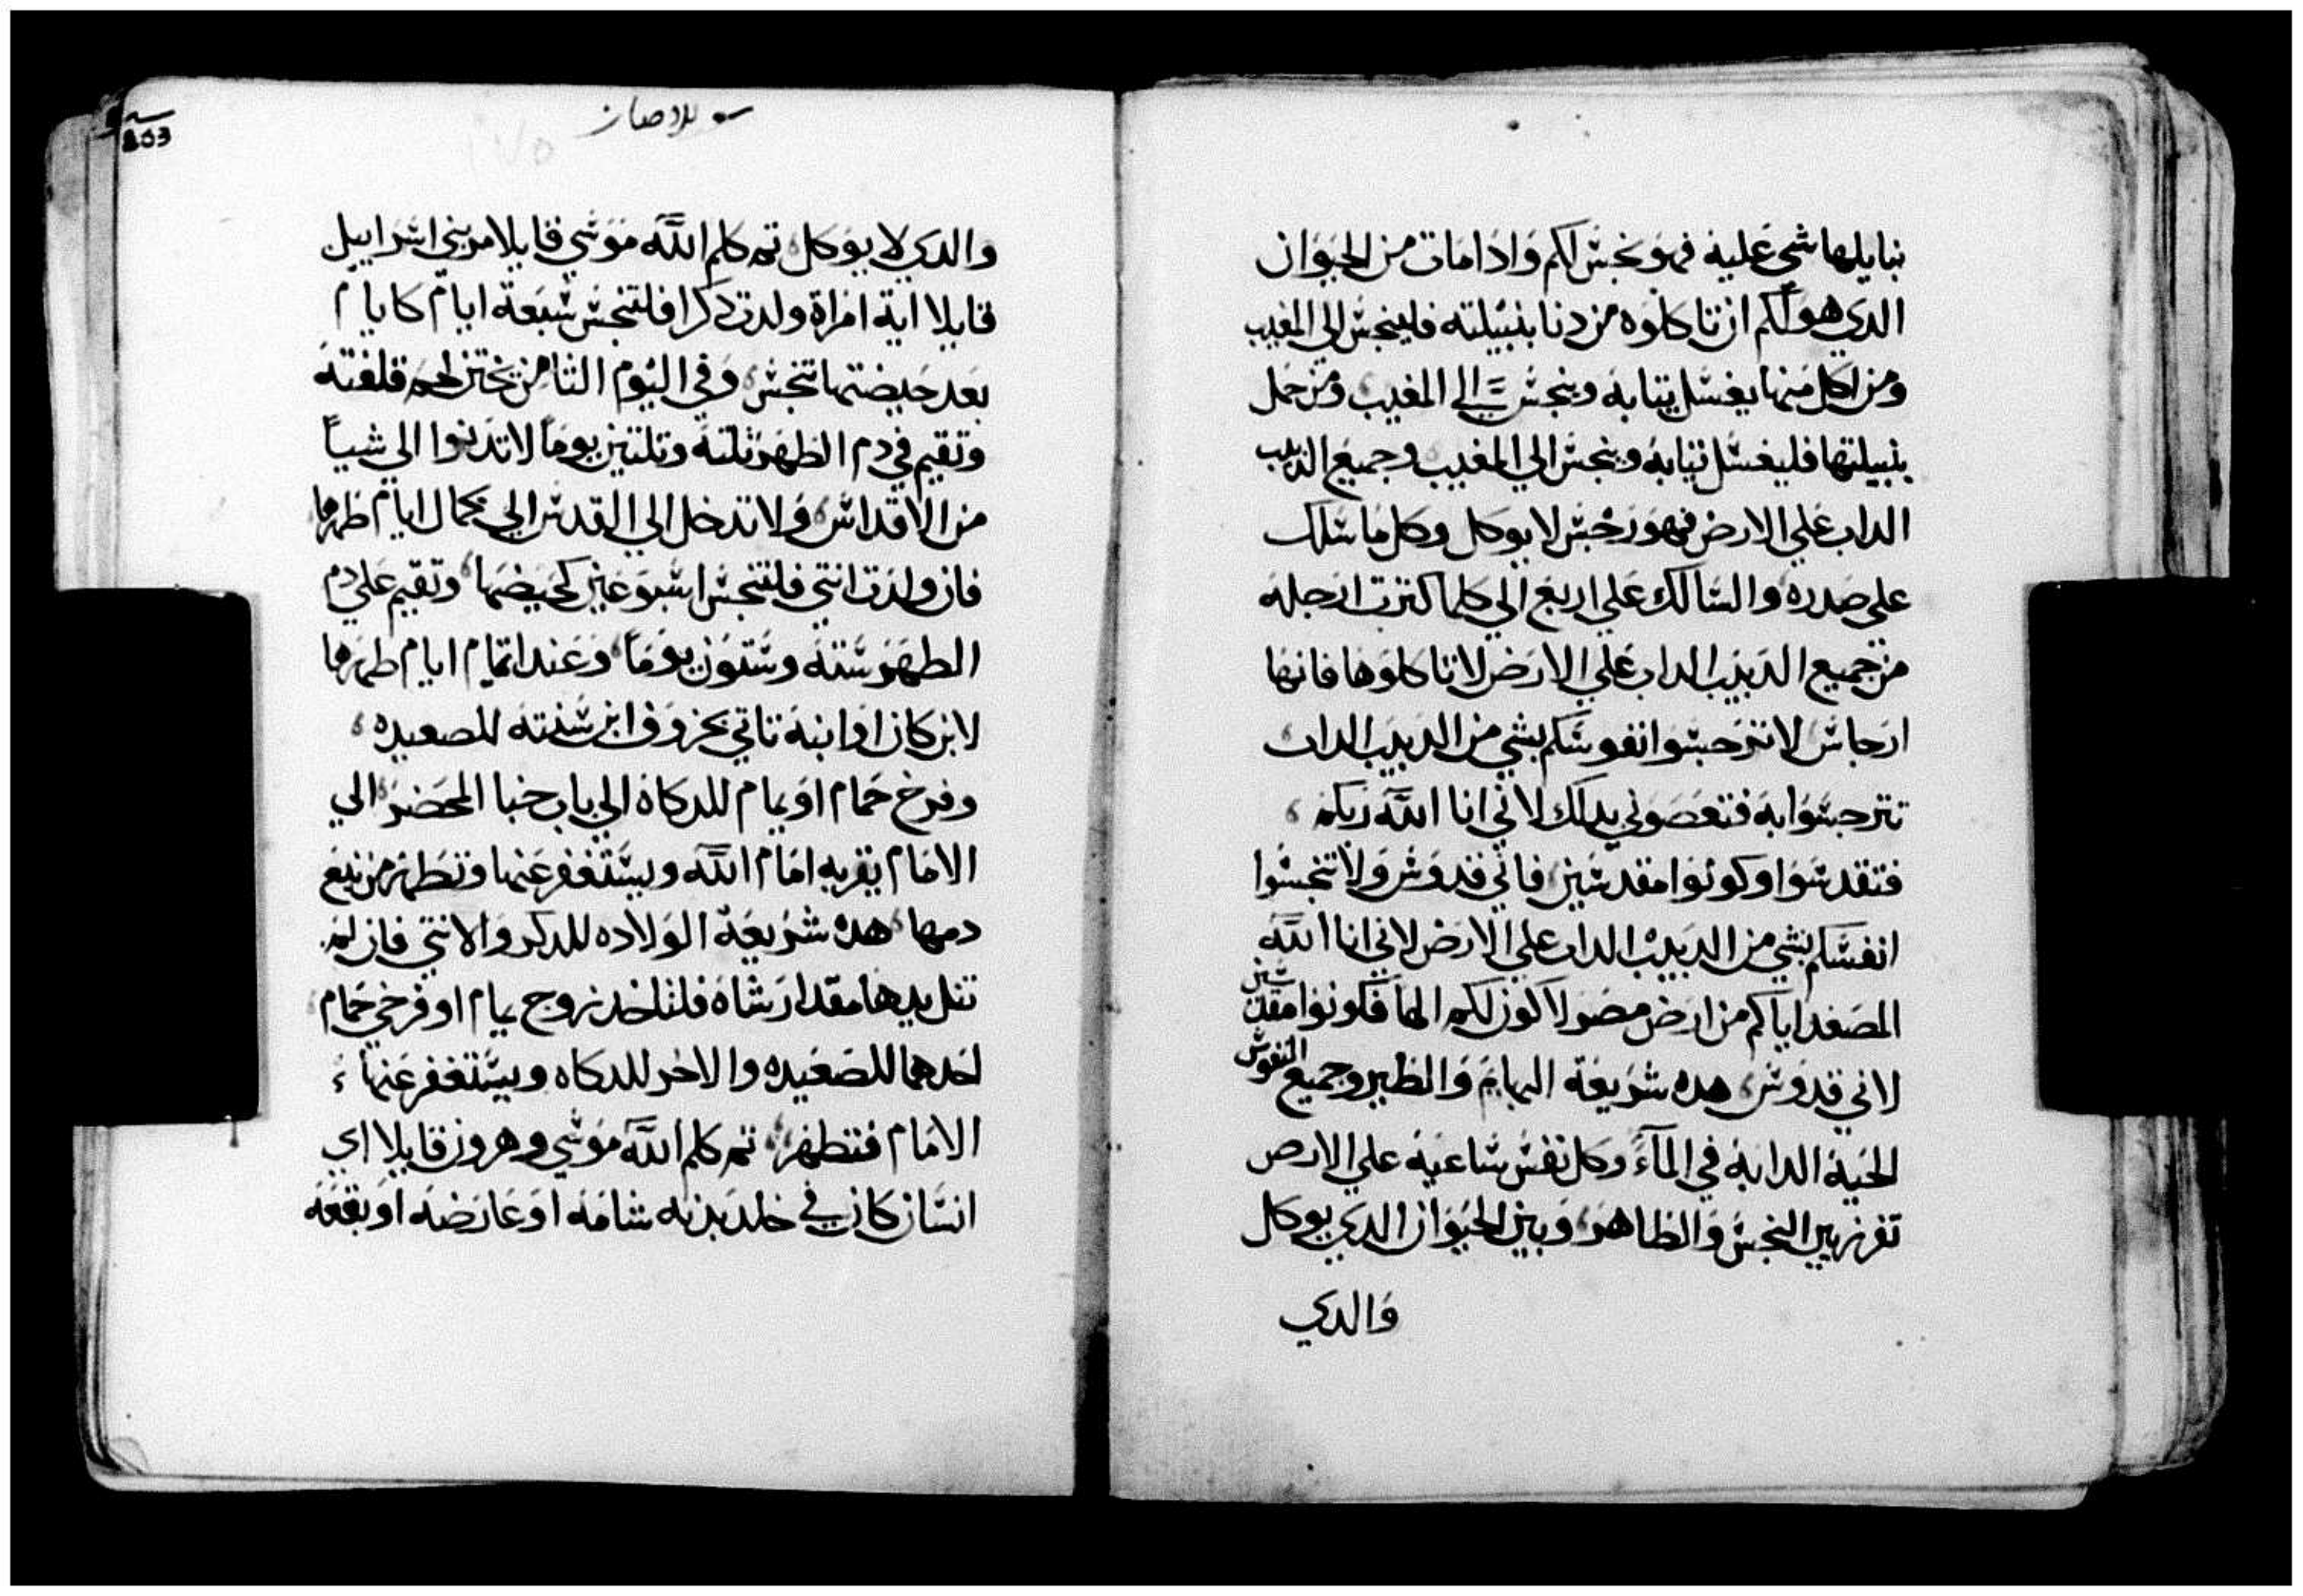 نبايلها شي عليه فهو نجس لكم واذا مات من الحيوان
الدي هو لكم ان تاكلوه من دنا بنبيلته فلينجس الي المغيب
ومن اكل منها يغسل تيابه وينجس الي المغيب ومن حمل
بنبيلتها فليغسل تيابه وينجس الي المغيب وجميع الدبيب
الداب علي الارض فهو رجس لا يوكل وكل ما سلك
علي صدره والسالك علي اربع الي كلما كترت ارجله
من جميع الدبيب الداب علي الارض لا تاكلوها فانها
ارجاس لا تترجسوا نفوسكم بشي من الدبيب الداب
تترجسوا به فتعصوني بدلك لاني انا الله ربكم
فتقدسوا وكونوا مقدسين فاني قدوس ولا تنجسوا
انفسكم بشي من الدبيب الداب علي الارض لاني انا الله
المصعد اياكم من ارض مصر لاكون لكم الها فكونوا مقدسين
لاني قدوس هده شريعة البهايم والطير وجميع النفوس
الحية الدابة في المآء وكل نفس ساعية علي الارض
تفرز بين النجس والطاهر وبين الحيوان الدي يوكل
والدي
803
والدي لا يوكل تم كلم الله موسي قايلا مر بني اسراييل
قايلا اية امراة ولدت دكرا فلتنجس سبعة ايام كايام
بعد حيضتها تنجس وفي اليوم التامن يختن لحم قلفته
وتقيم في دم الطهر تلتة وتلتين يوما لا تدنوا الي شيا
من الاقداس ولا تدخل الي القدس الي كمال ايام طهرها
فان ولدت انتي فلتنجس اسبوعين كحيضها وتقيم علي دم
الطهر ستة وستون يوما وعند اتمام ايام طهرها
لابن كان او ابنة تاتي بخروف ابن سنته للصعيده
وفرخ حمام او يمام للدكاة الي باب خبا المحضر الي
الامام يقربه امام الله ويستغفر عنها وتطهر من نبع
دمها هده شريعة الولاده للدكر والانتي فان لم
تنل يدها مقدار شاة فلتاخد زوج يمام او فرخي حمام
احدهما للصعيده والاخر للدكاه ويستغفر عنها
الامام فتطهر تم كلم الله موسي وهرون قايلا اي
انسان كان في جلد بدنه شامة او عارضه او بقعه